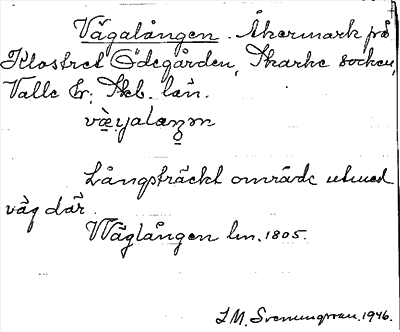 Vägalången. Åkermark på
Klostret Ödegården, Skarke socken,
Valle hr; Skb. län.
Långsträckt område utmed
väg där.
Wäglången lm. 1805.
I.M. Svenungsson. 1946.